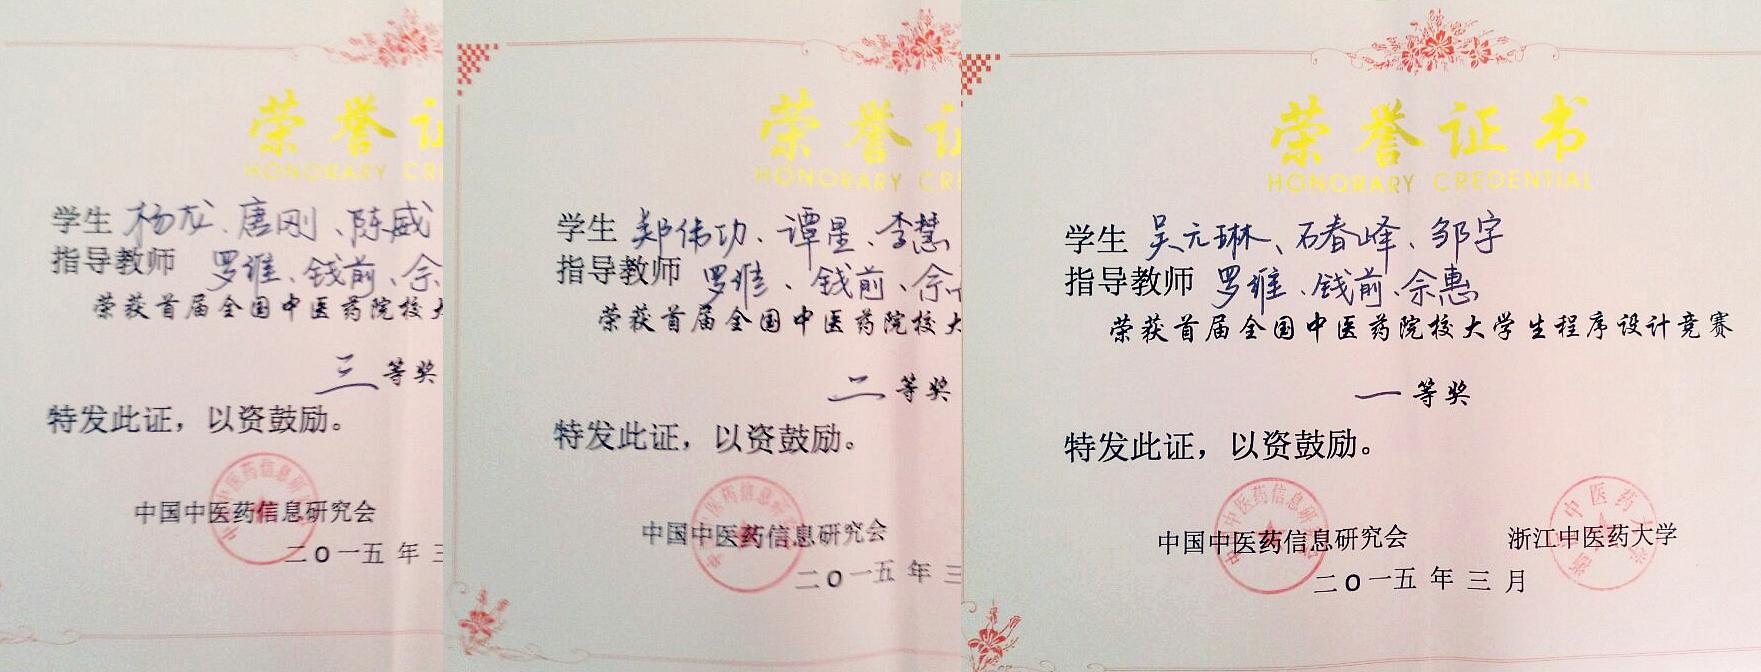 荣誉证
HONORARY CRE
学生 杨龙、唐刚、陈威
指导教师 罗维、钱前、佘
荣获首届全国中医药院校大
三等奖
特发此证，以资鼓励。
中国中医药信息研究会
二〇一五年三
荣誉证
HONORARY CRE
学生 郑伟功、谭星、李慧
指导教师 罗维、钱前、佘
荣获首届全国中医药院校大
二等奖
特发此证，以资鼓励。
中国中医药信息研究会
二〇一五年三
荣誉证书
HONORARY CREDENTIAL
学生 吴元琳、石春峰、邹宇
指导教师 罗维、钱前、佘惠
荣获首届全国中医药院校大学生程序设计竞赛
一等奖
特发此证，以资鼓励。
中国中医药信息研究会 浙江中医药大学
二〇一五年三月